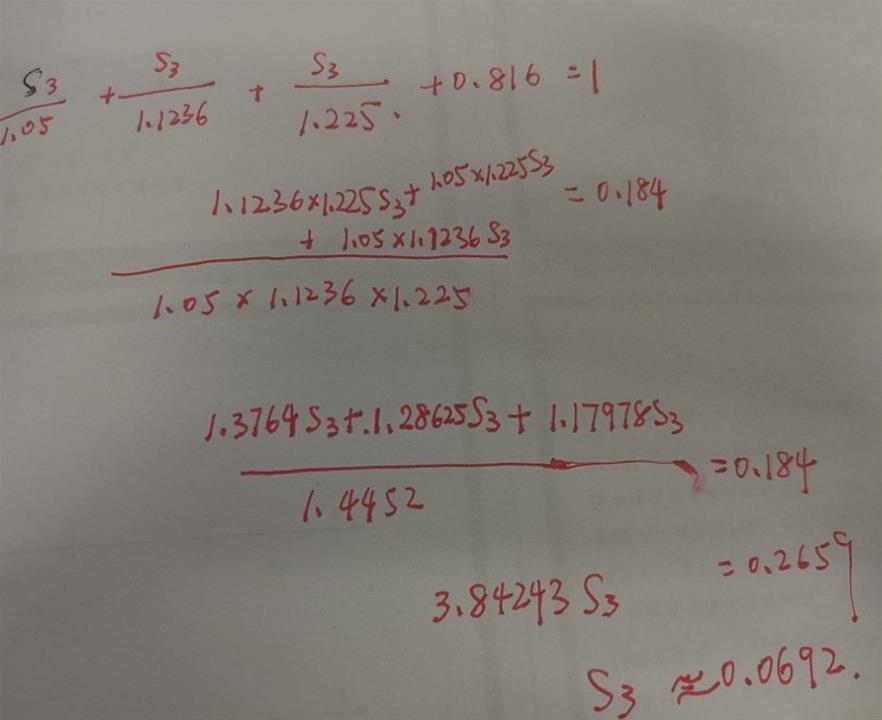 S3/1.05 + S3/1.1236 + S3/1.225. + 0.816 = 1
1.1236×1.225S3 + 1.05×1.225S3 = 0.184
+ 1.05×1.1236 S3
1.05 × 1.1236 × 1.225
1.3764S3 + .1.28625S3 + 1.17978S3 = 0.184
1.4452
3.84243 S3 = 0.2659
S3 ≈ 0.0692.